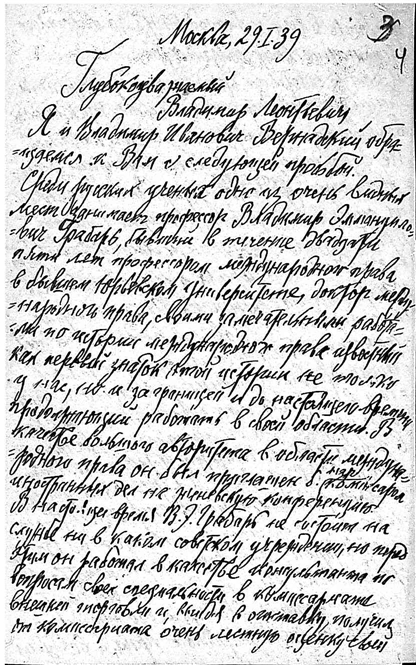 Москва, 29.I.39
3
4
Глубокоуважаемый
Владимир Леонтьевич
Я и Владимир Иванович Вернадский обра-
щаемся к Вам с следующей просьбой.
Среди русских ученых одно из очень видных
мест занимает профессор Владимир Эммануило-
вич Грабарь, бывший в течение двадцати
пяти лет профессором международного права
в бывшем Юрьевском университете, доктор между-
народного права, своими замечательными работа-
ми по истории международного права известный
как первый знаток этой истории не только
у нас, но и за границей и до настоящего времени
продолжающий работать в своей области. В
качестве большого авторитета в области междуна-
родного права он был приглашен б. комиссариатом
иностранных дел на конференцию
В настоящее время В.Э. Грабарь не состоит на
службе ни в каком советском учреждении, но перед
этим он работал в качестве консультанта по
вопросам своей специальности в комиссариате
внешней торговли и, выйдя в отставку, получил
от комиссариата очень лестную оценку своей